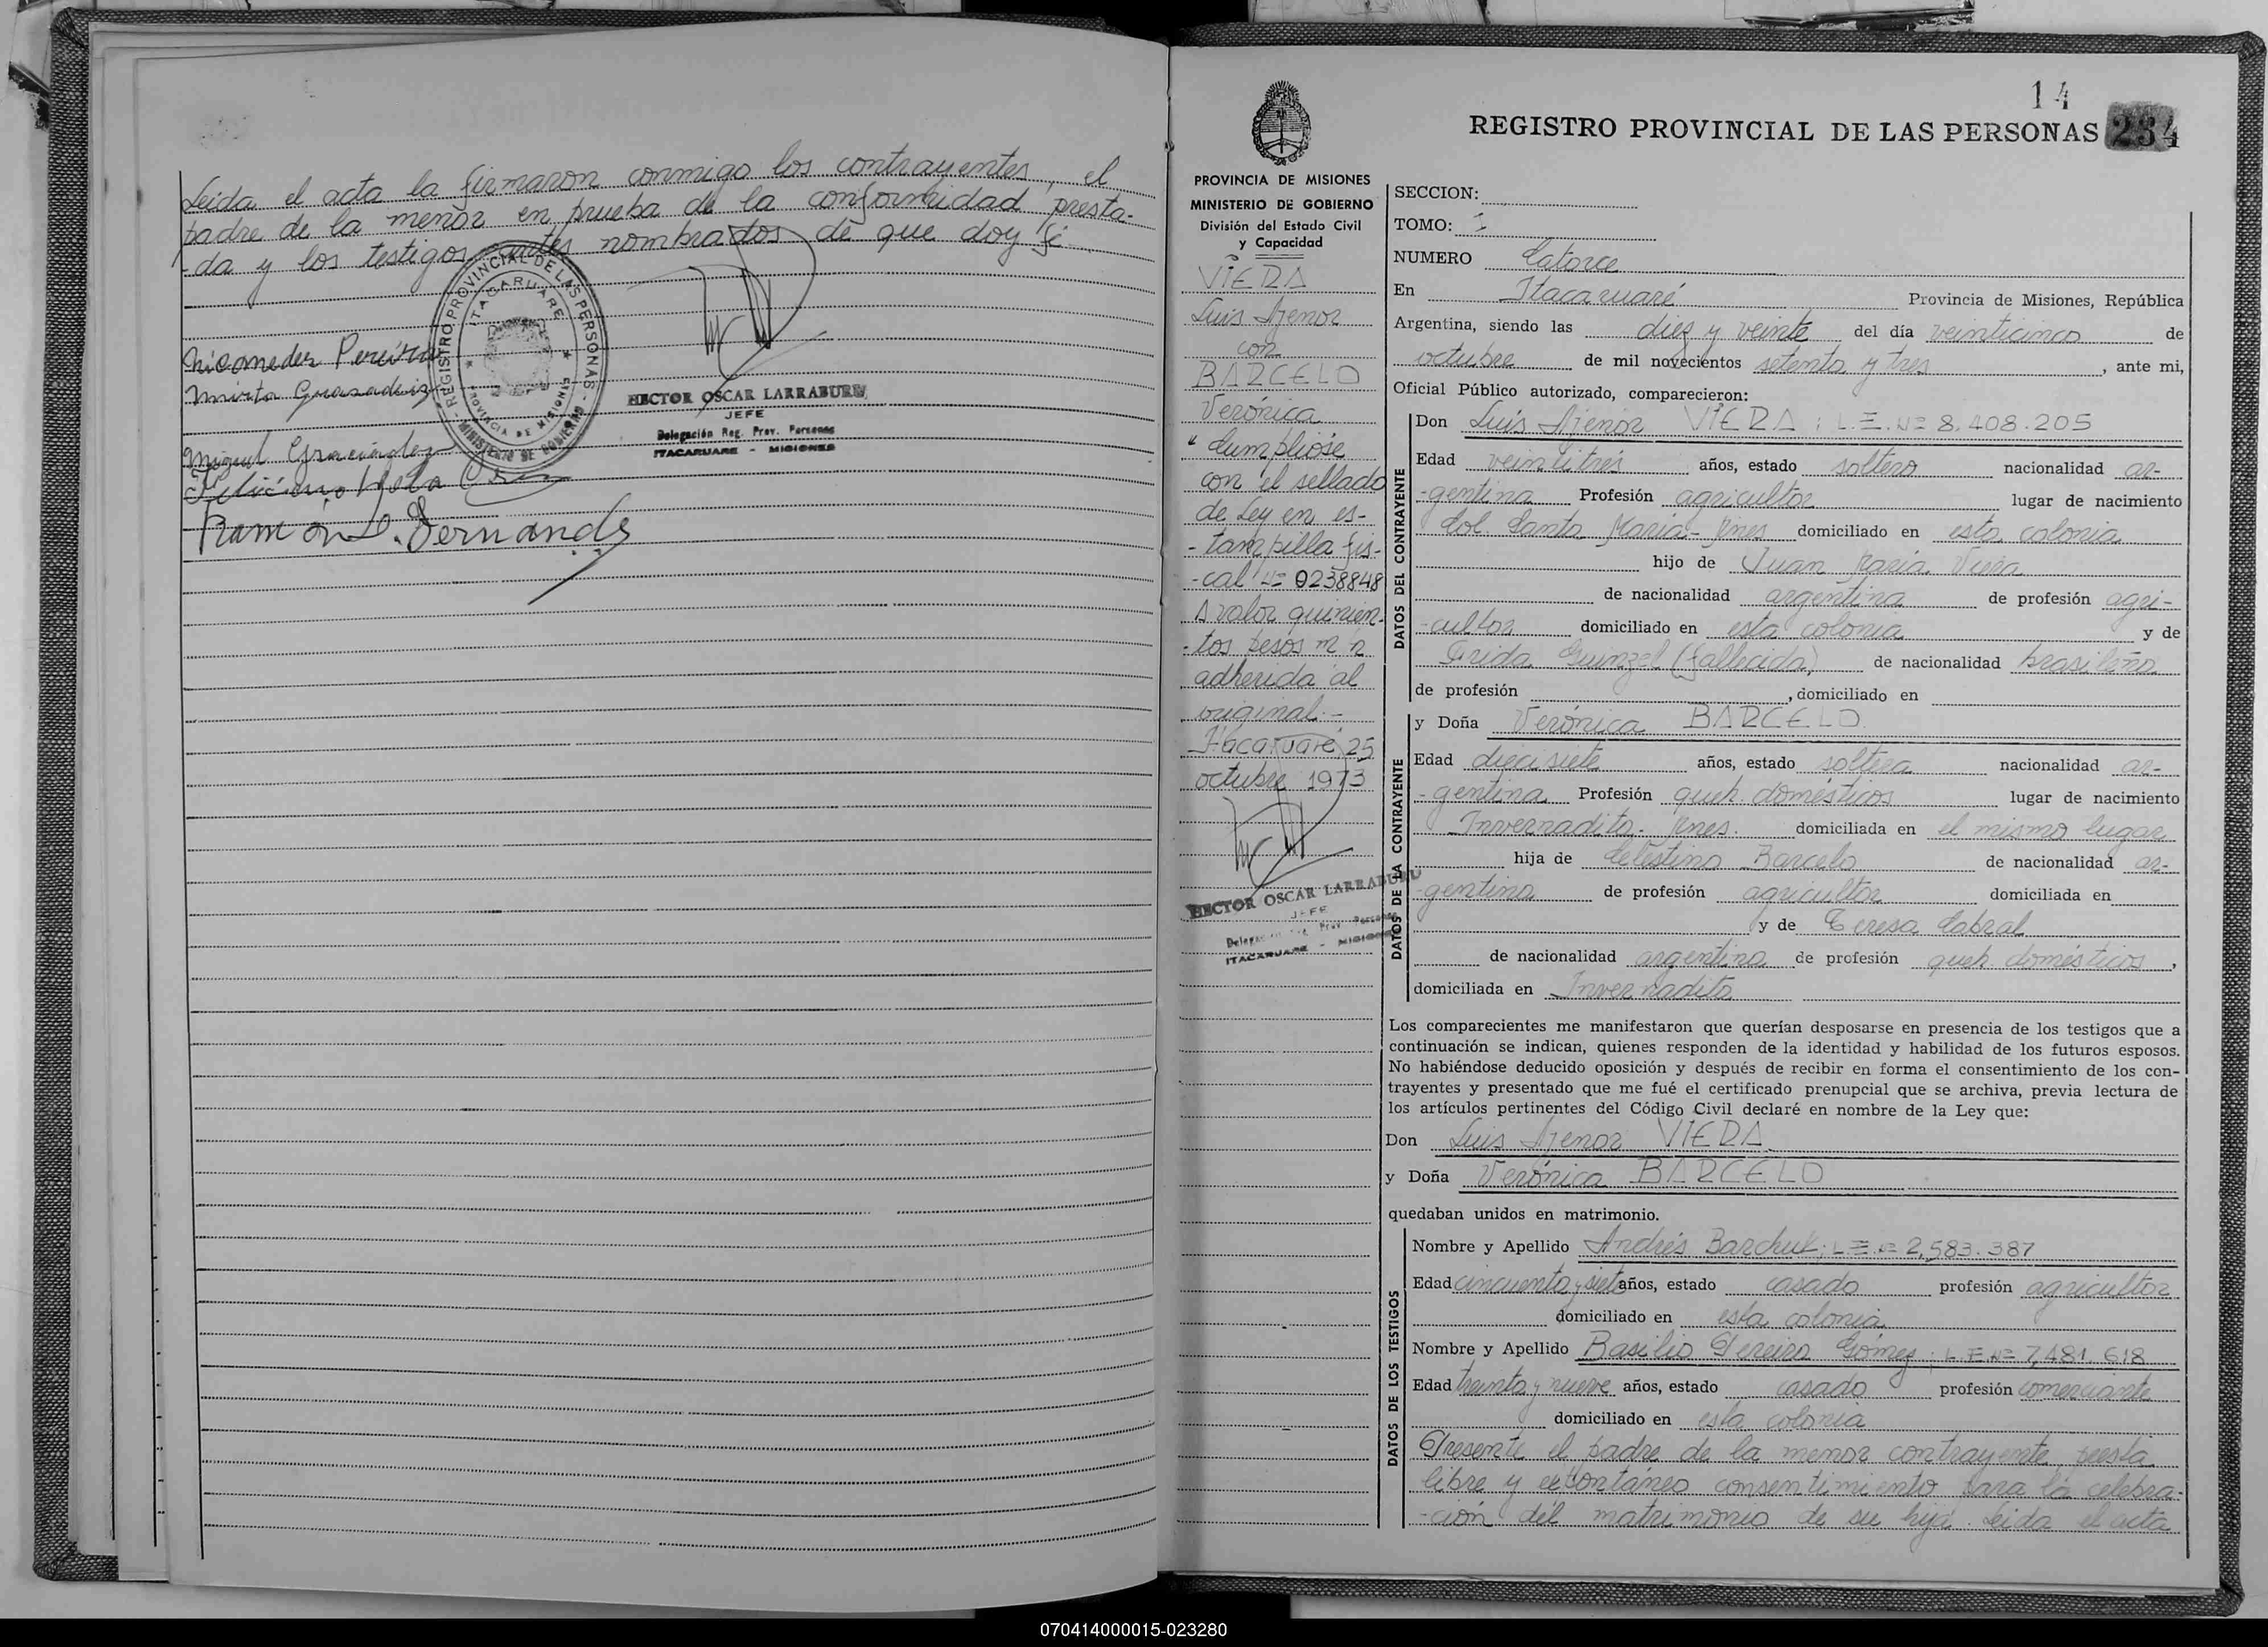 Leida el acta la firmaron conmigo los contrayentes, el
padre de la menor en prueba de la conformidad presta-
-da y los testigos antes nombrados de que doy fé
REGISTRO PROVINCIAL DE LAS PERSONAS
ITACARUARE
PROVINCIA DE MISIONES
MINISTERIO DE GOBIERNO
Nicomedes Pereira
Mirta
HECTOR OSCAR LARRABURU
JEFE
Delegación Reg. Prov. Personas
ITACARUARE - MISIONES
Miguel
Ramón
14
REGISTRO PROVINCIAL DE LAS PERSONAS 234
PROVINCIA DE MISIONES
MINISTERIO DE GOBIERNO
División del Estado Civil
y Capacidad
VIERA
Luis Ajenor
con
BARCELO
Verónica
"Cumpliose
con el sellado
de Ley en es-
-tampilla fis-
-cal Nº 0238848
A valor quinien-
-tos pesos m/n
adherida al
original.-
Itacaruaré 25
octubre 1973
HECTOR OSCAR LARRABURU
JEFE
Prov. Personas
ITACARUARE - MISIONES
SECCION:
TOMO: I
NUMERO Catorce
En Itacaruaré Provincia de Misiones, República
Argentina, siendo las diez y veinte del día veinticinco de
octubre de mil novecientos setenta y tres, ante mi,
Oficial Público autorizado, comparecieron:
DATOS DEL CONTRAYENTE
Don Luis Ajenor VIERA; L.E. Nº 8.408.205
Edad veintitrés años, estado soltero nacionalidad ar-
-gentina Profesión agricultor lugar de nacimiento
Col. Santa María - Mnes domiciliado en esta colonia
hijo de Juan María Viera
de nacionalidad argentina de profesión agri-
-cultor domiciliado en esta colonia y de
Guinzel (fallecida) de nacionalidad brasileña
de profesión , domiciliado en
DATOS DE LA CONTRAYENTE
y Doña Verónica BARCELO
Edad diecisiete años, estado soltera nacionalidad ar-
-gentina Profesión queh. domésticos lugar de nacimiento
Invernadita. Mnes. domiciliada en el mismo lugar
hija de Celestino Barcelo de nacionalidad ar-
-gentina de profesión agricultor domiciliada en
y de Teresa Cabral
de nacionalidad argentina de profesión queh. domésticos,
domiciliada en Invernadita
Los comparecientes me manifestaron que querían desposarse en presencia de los testigos que a
continuación se indican, quienes responden de la identidad y habilidad de los futuros esposos.
No habiéndose deducido oposición y después de recibir en forma el consentimiento de los con-
trayentes y presentado que me fué el certificado prenupcial que se archiva, previa lectura de
los artículos pertinentes del Código Civil declaré en nombre de la Ley que:
Don Luis Ajenor VIERA
y Doña Verónica BARCELO
quedaban unidos en matrimonio.
DATOS DE LOS TESTIGOS
Nombre y Apellido Andrés Barchuk; L.E. Nº 2.583.387
Edad cincuenta y siete años, estado casado profesión agricultor
domiciliado en esta colonia
Nombre y Apellido Basilio Pereira Gómez; L.E. Nº 7.481.618
Edad treinta y nueve años, estado casado profesión comerciante
domiciliado en esta colonia
Presente el padre de la menor contrayente, presta
libre y espontáneo consentimiento para la celebra-
-ción del matrimonio de su hija. Leida el acta
070414000015-023280